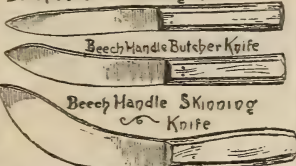 Beech Handle Butcher Knife
Beech Handle Skinning
Knife